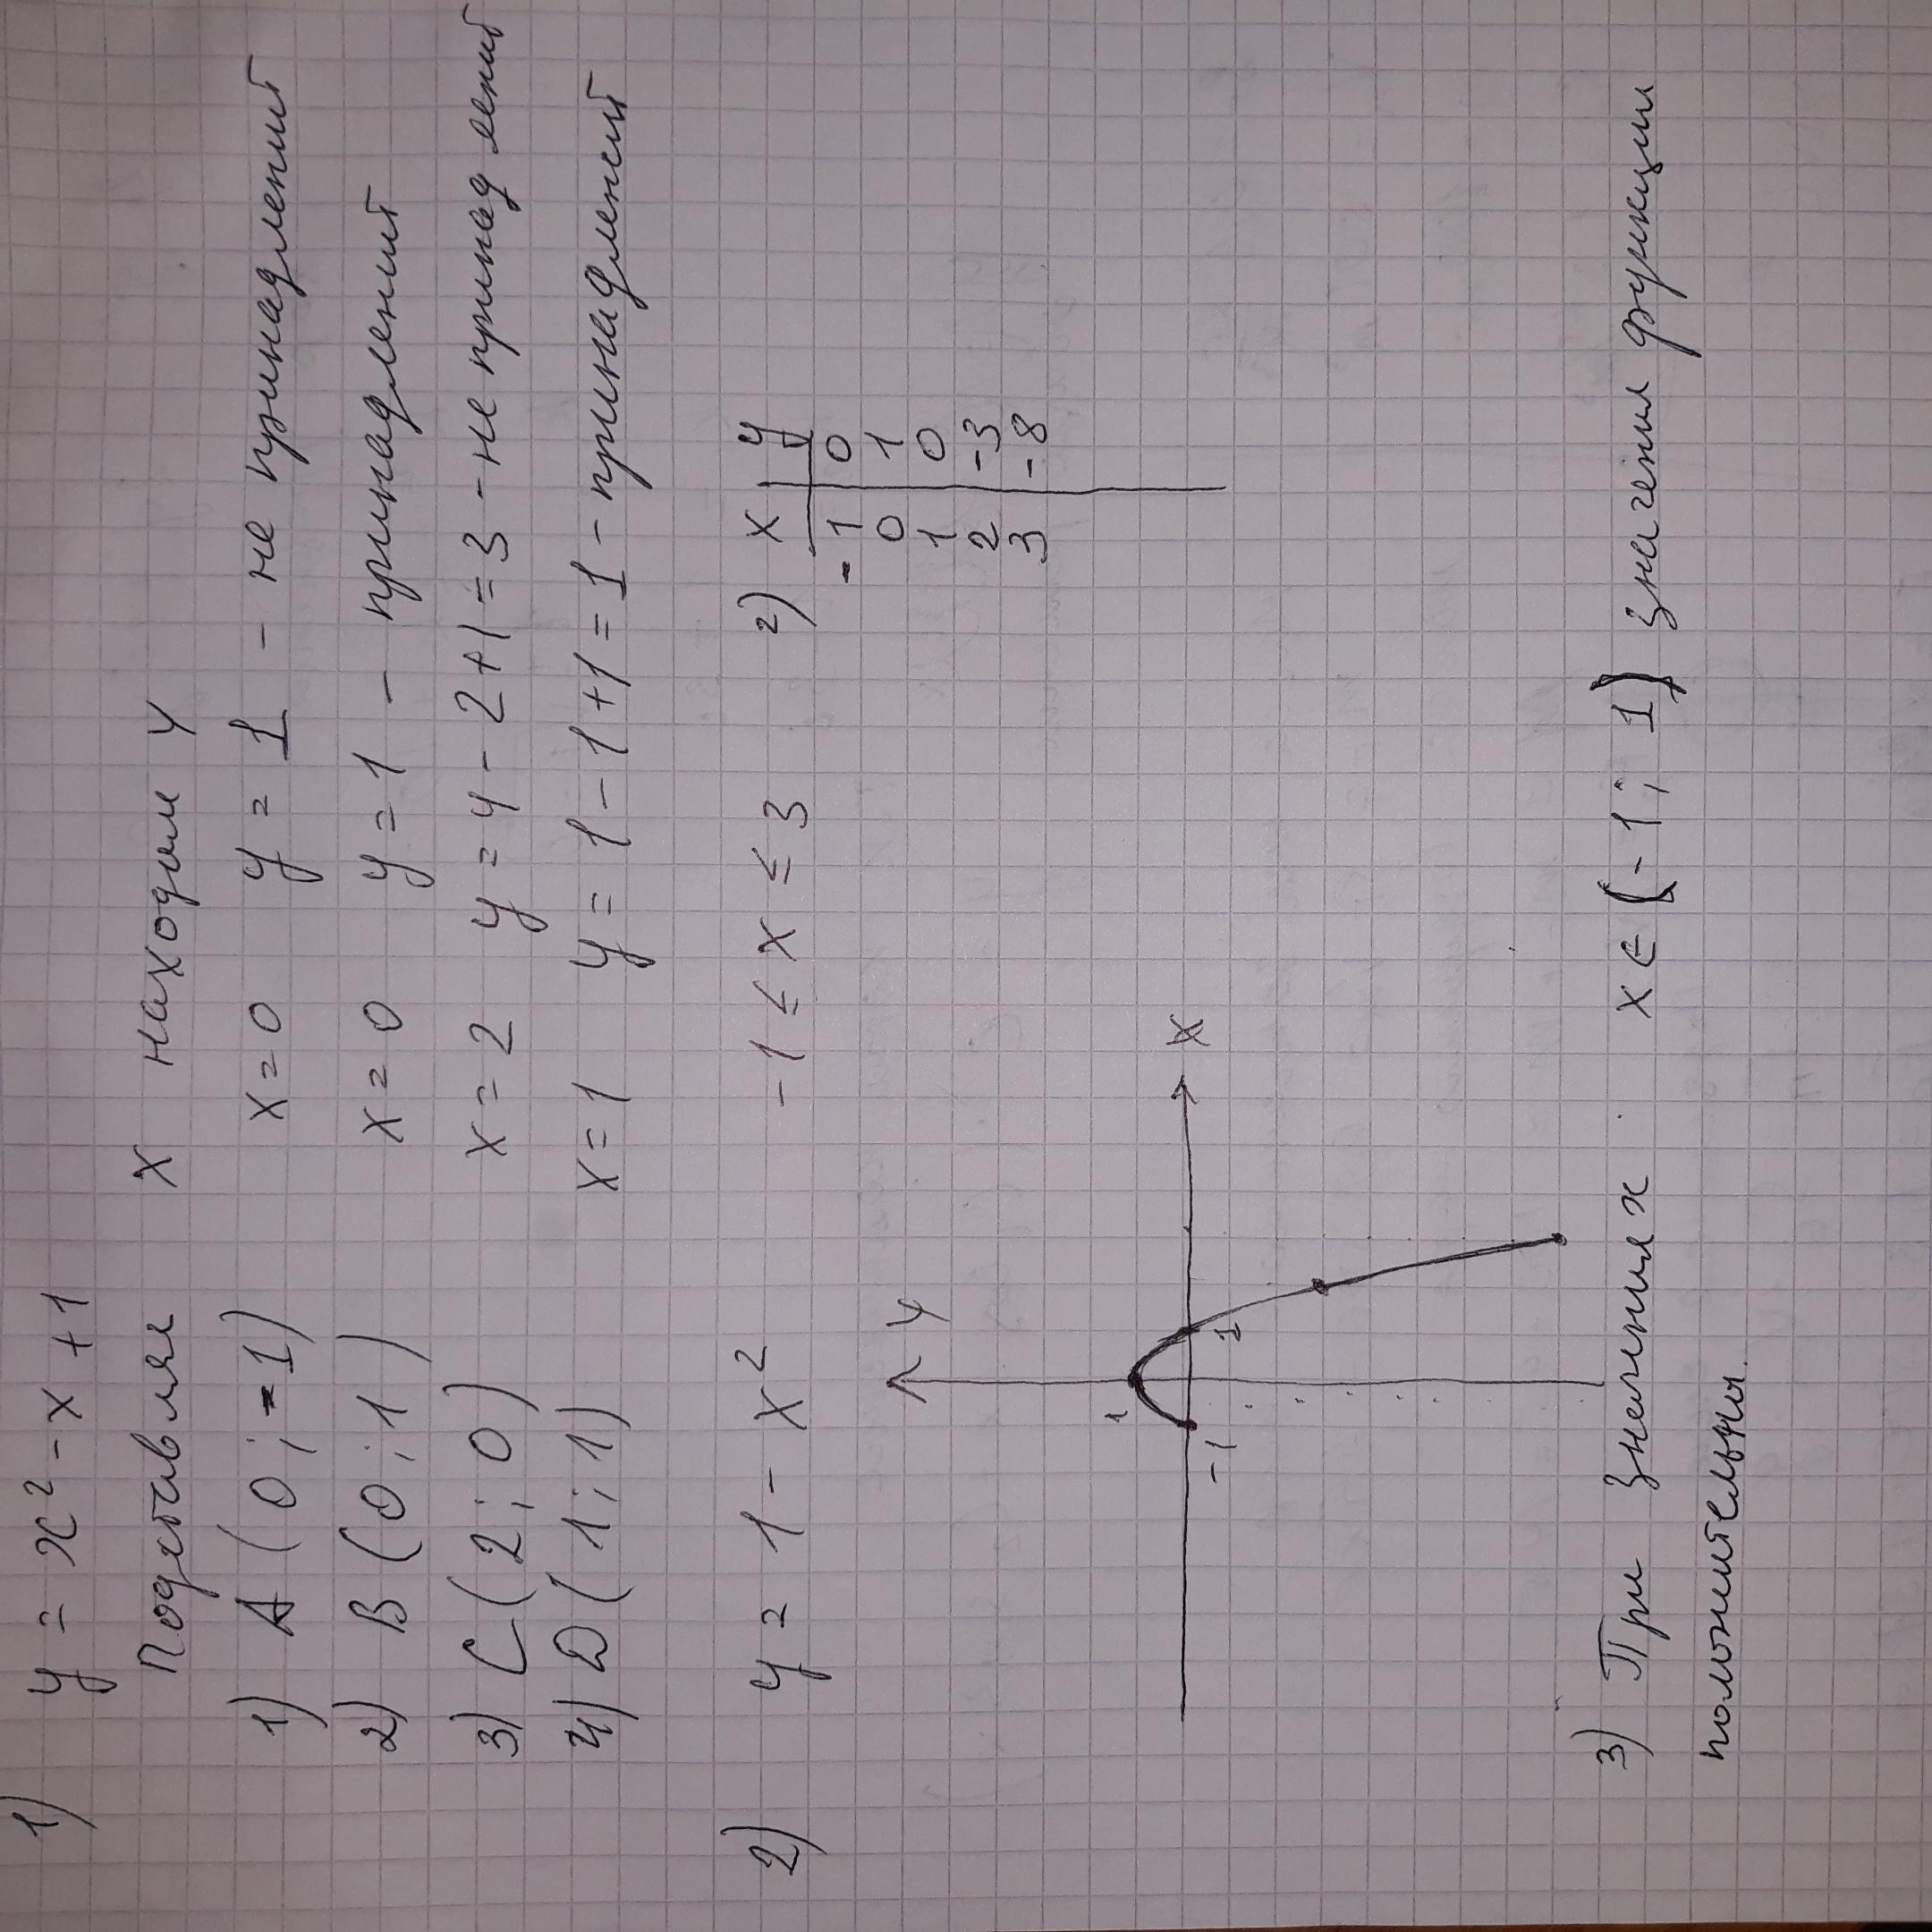 1) y = x² - x + 1
Подставляя x находим y
1) A (0; -1) x = 0 y = 1 - не принадлежит
2) B (0; 1) x = 0 y = 1 - принадлежит
3) C (2; 0) x = 2 y = 4 - 2 + 1 = 3 - не принадлежит
4) D (1; 1) x = 1 y = 1 - 1 + 1 = 1 - принадлежит
2) y = 1 - x² -1 ≤ x ≤ 3 2) x y
-1 0
0 1
1 0
2 -3
3 -8
y
1
x
-1 1
3) При значениях x ∈ (-1; 1) значения функции
положительны.